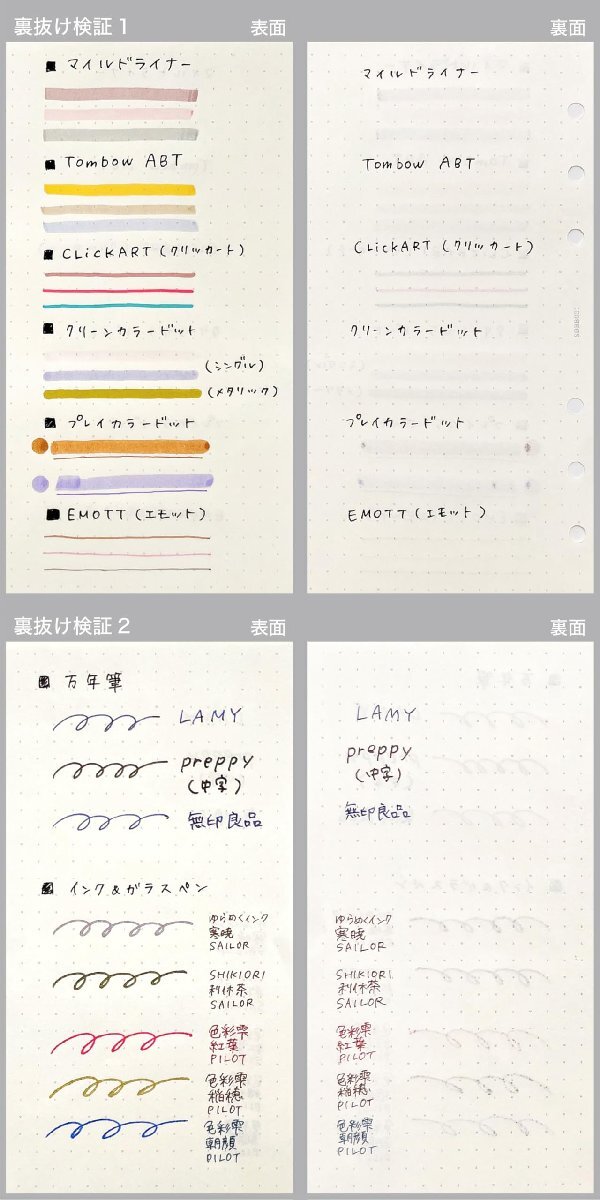 裏抜け検証1
表面
マイルドライナー
Tombow ABT
CLiCKART (クリッカート)
クリーンカラードット
(シングル)
(メタリック)
プレイカラードット
EMOTT (エモット)
裏面
マイルドライナー
Tombow ABT
CLiCKART (クリッカート)
クリーンカラードット
プレイカラードット
EMOTT (エモット)
裏抜け検証2
表面
万年筆
LAMY
preppy
(中字)
無印良品
インク&ガラスペン
ゆらめくインク
寒暁
SAILOR
SHIKIORI
利休茶
SAILOR
色彩雫
紅葉
PILOT
色彩雫
稲穂
PILOT
色彩雫
朝顔
PILOT
裏面
LAMY
preppy
(中字)
無印良品
ゆらめくインク
寒暁
SAILOR
SHIKIORI
利休茶
SAILOR
色彩雫
紅葉
PILOT
色彩雫
稲穂
PILOT
色彩雫
朝顔
PILOT